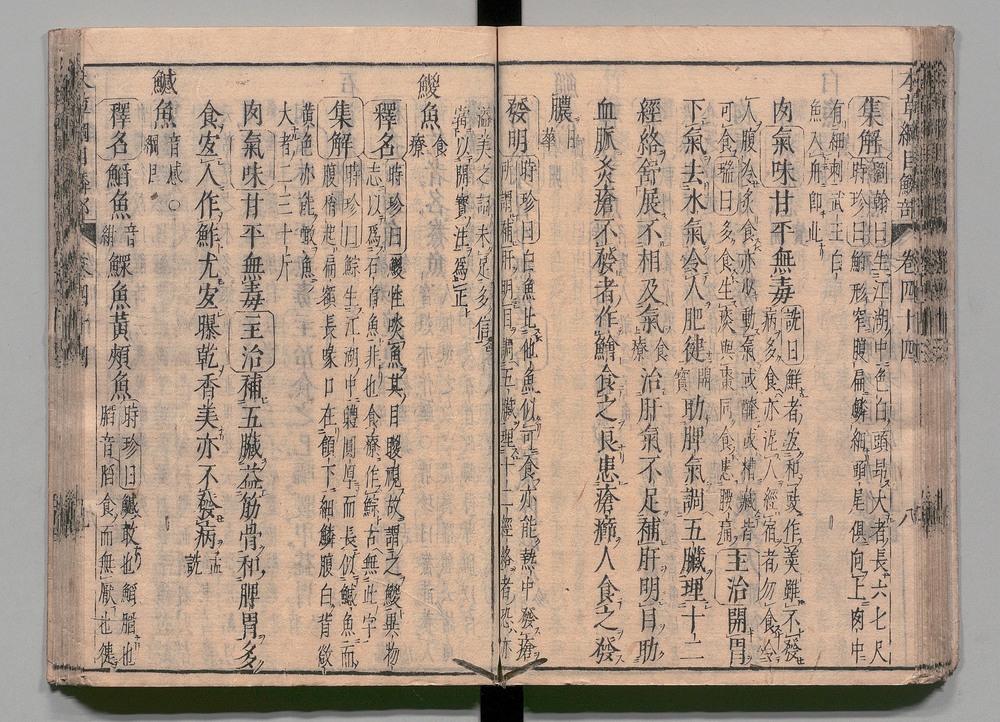 本草綱目鱗部 卷四十四 八
集解瀚曰生江湖中色白頭昂大者長六七尺
時珍曰鱎形窄腹扁鱗細頭尾俱向上肉中
有細刺武王白
魚入舟即此
肉氣味甘平無毒詵曰鮮者宜和豉作羹雖不發
病多食亦泥人經宿者勿食令
人腹冷炙食亦少動氣或醃或糟藏者
可食瑞曰多食生痰與棗同食患腰痛主治開胃
下氣去水氣令人肥健開寶助脾氣調五臟理十二
經絡舒展不相及氣食療治肝氣不足補肝明目助
血脈灸瘡不發者作鱠食之良患瘡癤人食之發
膿日華
發明時珍曰白魚比他魚似可食亦能熱中發瘡
所謂補肝明目調五臟理十二經絡者恐亦
溢美之詞未足多信當
以開寶注為正
鰀魚食療
釋名時珍曰鰀性啖魚其目䁔視故謂之鰀異物
志以為石首魚非也食療作鯮古無此字
集解時珍曰鯮生江湖中體圓厚而長似鱤魚而
腹稍起扁額長喙口在頷下細鱗腹白背微
黃色亦能啖魚
大者二三十斤
肉氣味甘平無毒主治補五臟益筋骨和脾胃多
食宜人作鮓尤宜曝乾香美亦不發病孟詵
鱤魚音感○綱目
釋名䱤魚音紺鰥魚黃頰魚時珍曰鱤敢也䱤䐄也
䐄音䐄食而無厭也健